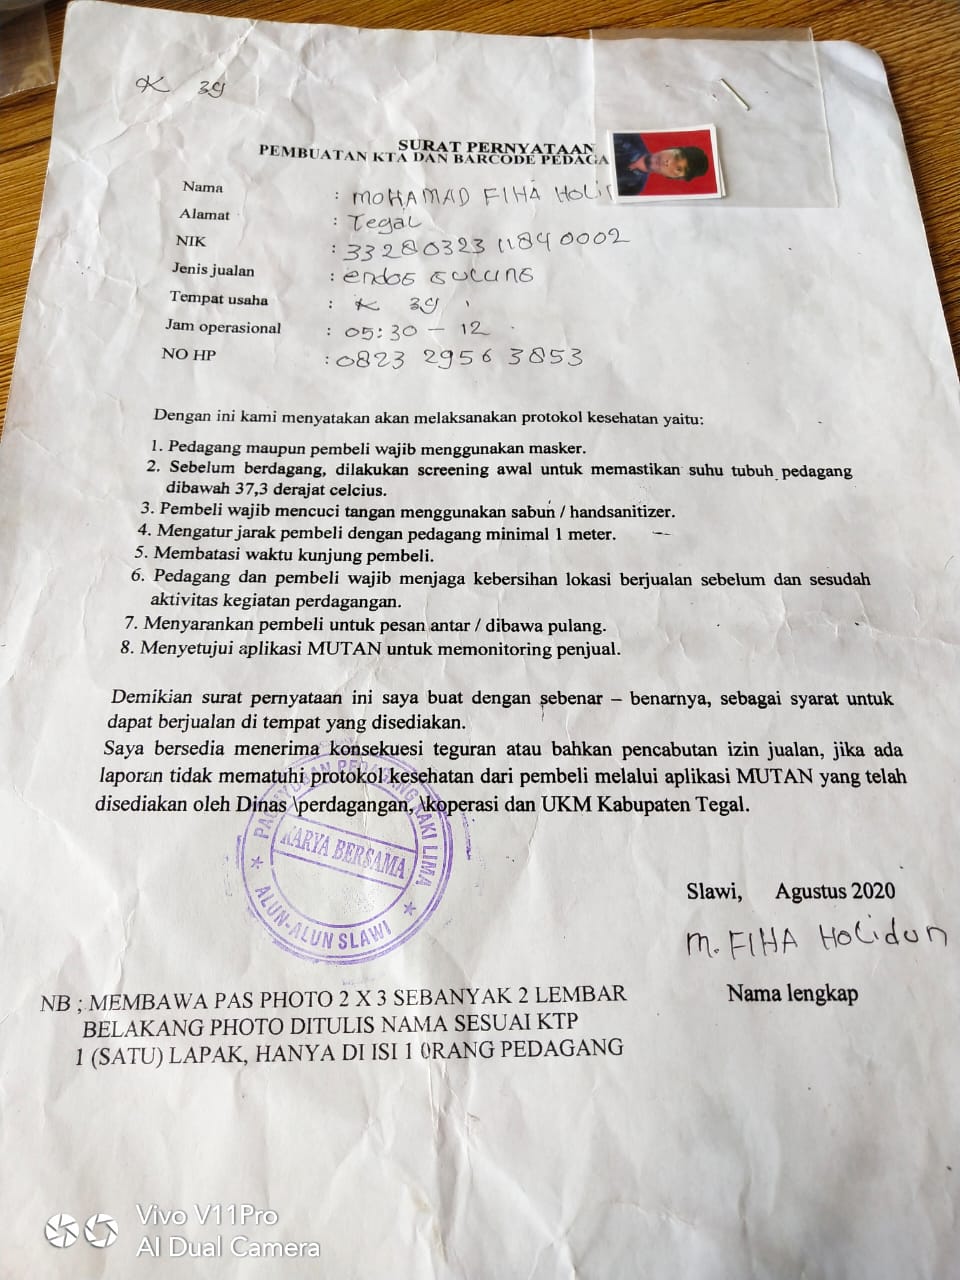 K 39
SURAT PERNYATAAN
PEMBUATAN KTA DAN BARCODE PEDAGA
Nama : MOHAMAD FIHA HOLI
Alamat : Tegal
NIK : 3328032311840002
Jenis jualan : endos GULUNG
Tempat usaha : K 39
Jam operasional : 05:30 – 12
NO HP : 0823 2956 3853
Dengan ini kami menyatakan akan melaksanakan protokol kesehatan yaitu:
1. Pedagang maupun pembeli wajib menggunakan masker.
2. Sebelum berdagang, dilakukan screening awal untuk memastikan suhu tubuh pedagang
dibawah 37,3 derajat celcius.
3. Pembeli wajib mencuci tangan menggunakan sabun / handsanitizer.
4. Mengatur jarak pembeli dengan pedagang minimal 1 meter.
5. Membatasi waktu kunjung pembeli.
6. Pedagang dan pembeli wajib menjaga kebersihan lokasi berjualan sebelum dan sesudah
aktivitas kegiatan perdagangan.
7. Menyarankan pembeli untuk pesan antar / dibawa pulang.
8. Menyetujui aplikasi MUTAN untuk memonitoring penjual.
Demikian surat pernyataan ini saya buat dengan sebenar – benarnya, sebagai syarat untuk
dapat berjualan di tempat yang disediakan.
Saya bersedia menerima konsekuesi teguran atau bahkan pencabutan izin jualan, jika ada
laporan tidak mematuhi protokol kesehatan dari pembeli melalui aplikasi MUTAN yang telah
disediakan oleh Dinas \perdagangan, \koperasi dan UKM Kabupaten Tegal.
PAGUYUBAN PEDAGANG KAKI LIMA
KARYA BERSAMA
ALUN-ALUN SLAWI
Slawi, Agustus 2020
M. FIHA Holidun
Nama lengkap
NB ; MEMBAWA PAS PHOTO 2 X 3 SEBANYAK 2 LEMBAR
BELAKANG PHOTO DITULIS NAMA SESUAI KTP
1 (SATU) LAPAK, HANYA DI ISI 1 ORANG PEDAGANG
Vivo V11Pro
AI Dual Camera